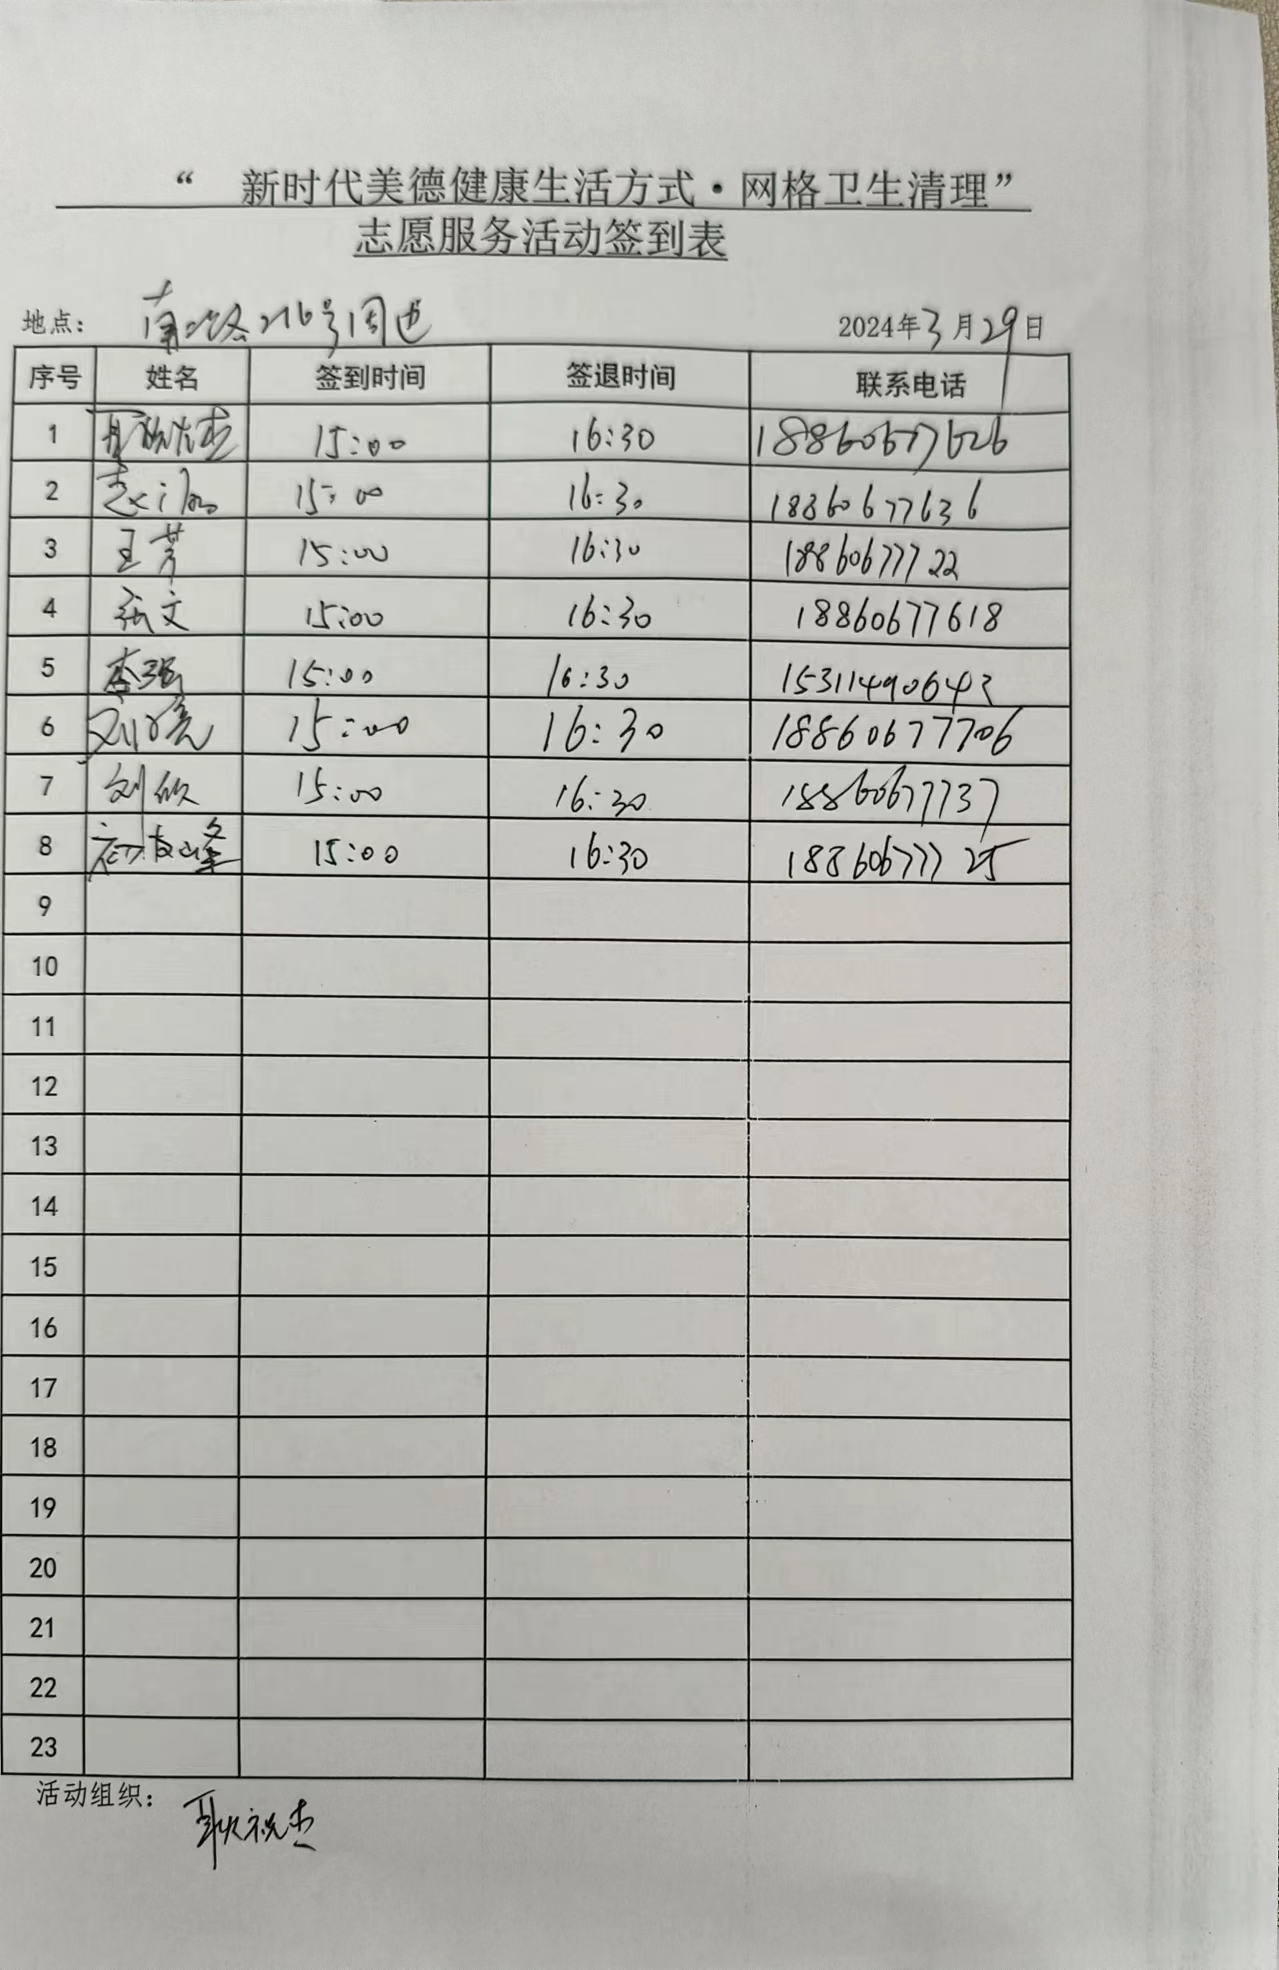 “ 新时代美德健康生活方式·网格卫生清理”
志愿服务活动签到表
地点： 号周边 2024年3月29日
序号 姓名 签到时间 签退时间 联系电话
1 15:00 16:30 18860677626
2 15:00 16:30 18860677636
3 王芳 15:00 16:30 18860677722
4 张文 15:00 16:30 18860677618
5 李强 15:00 16:30
6 15:00 16:30 18860677706
7 刘欣 15:00 16:30 18860677737
8 15:00 16:30 18860677725
9
10
11
12
13
14
15
16
17
18
19
20
21
22
23
活动组织： 耿祝杰